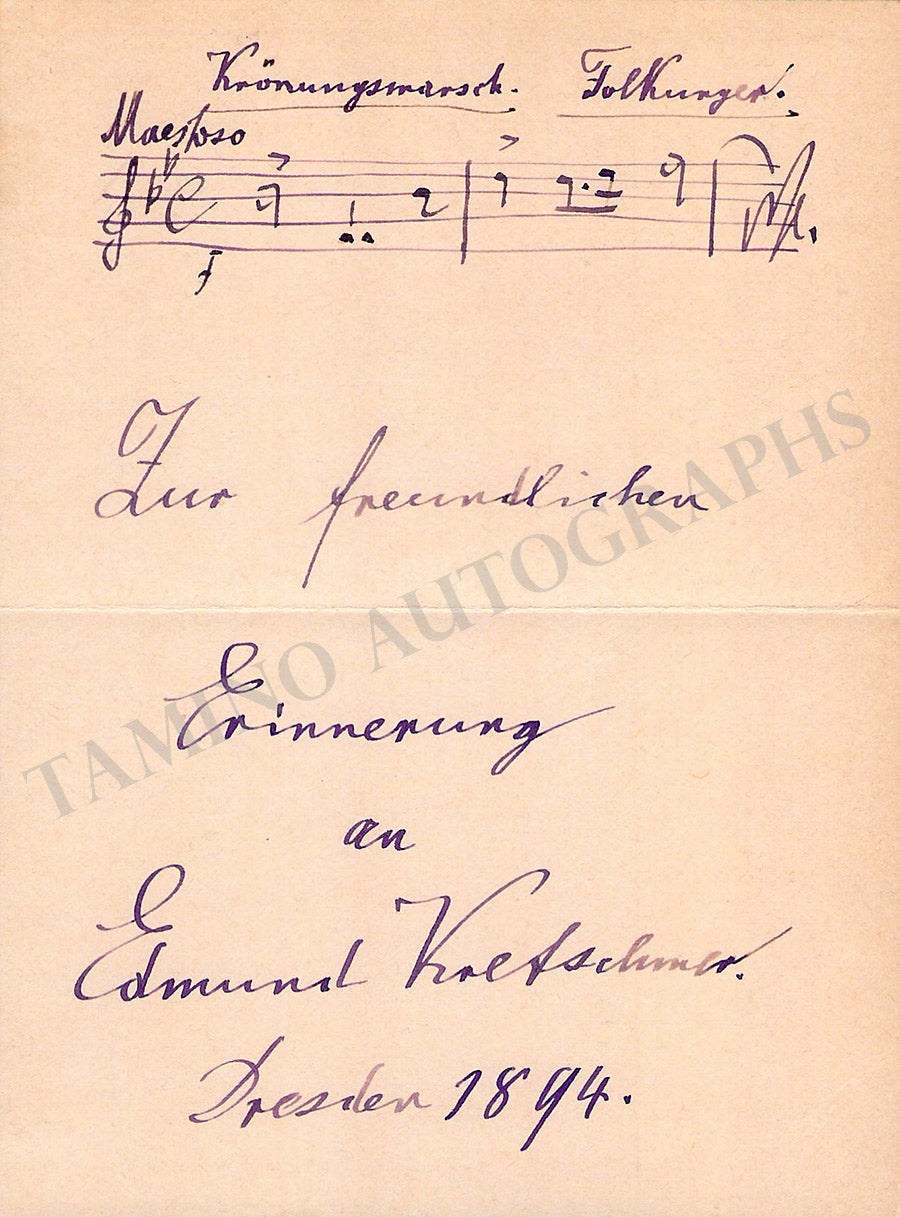 Krönungsmarsch. Folkunger.
Maestoso
f
Zur freundlichen
TAMINO AUTOGRAPHS
Erinnerung
an
Edmund Kretschmer.
Dresden 1894.